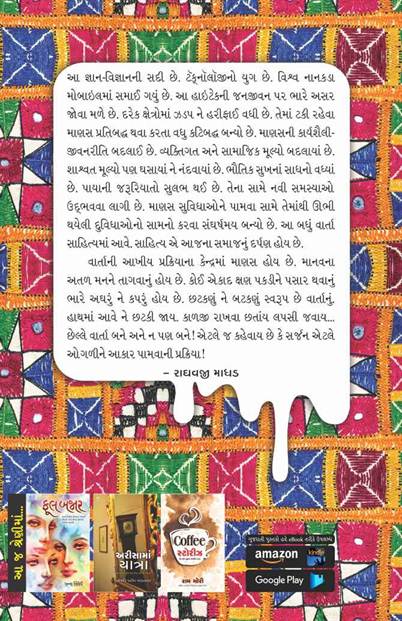 આ જ્ઞાન-વિજ્ઞાનની સદી છે. ટૅક્નૉલૉજીનો યુગ છે. વિશ્વ નાનકડા
મોબાઇલમાં સમાઈ ગયું છે. આ હાઇટેકની જનજીવન પર ભારે અસર
જોવા મળે છે. દરેક ક્ષેત્રોમાં ઝડપ ને હરીફાઈ વધી છે. તેમાં ટકી રહેવા
માણસ પ્રતિબદ્ધ થવા કરતા વધુ કટિબદ્ધ બન્યો છે. માણસની કાર્યશૈલી-
જીવનરીતિ બદલાઈ છે. વ્યક્તિગત અને સામાજિક મૂલ્યો બદલાયાં છે.
શાશ્વત મૂલ્યો પણ ઘસાયાં ને નંદવાયાં છે. ભૌતિક સુખનાં સાધનો વધ્યાં
છે. પાયાની જરૂરિયાતો સુલભ થઈ છે. તેના સામે નવી સમસ્યાઓ
ઉદ્ભવવા લાગી છે. માણસ સુવિધાઓને પામવા સામે તેમાંથી ઊભી
થયેલી દુવિધાઓનો સામનો કરવા સંઘર્ષમય બન્યો છે. આ બધું વાર્તા
સાહિત્યમાં આવે. સાહિત્ય એ આજના સમાજનું દર્પણ હોય છે.
વાર્તાની આખીય પ્રક્રિયાના કેન્દ્રમાં માણસ હોય છે. માનવના
અતળ મનને તાગવાનું હોય છે. કોઈ એકાદ ક્ષણ પકડીને પસાર થવાનું
ભારે અઘરું ને કપરું હોય છે. છટકણું ને બટકણું સ્વરૂપ છે વાર્તાનું.
હાથમાં આવે ને છટકી જાય. કાળજી રાખવા છતાંય લપસી જવાય...
છેલ્લે વાર્તા બને અને ન પણ બને! એટલે જ કહેવાય છે કે સર્જન એટલે
ઓગળીને આકાર પામવાની પ્રક્રિયા!
– રાઘવજી માધડ
આ જ શ્રેણીમાં...
ફૂલબહાર
અરીસામાં
યાત્રા
Coffee
સ્ટોરીઝ
રામ મોરી
ગુજરાતી પુસ્તકો હવે eBook તરીકે ઉપલબ્ધ
amazon
kindle
Google Play